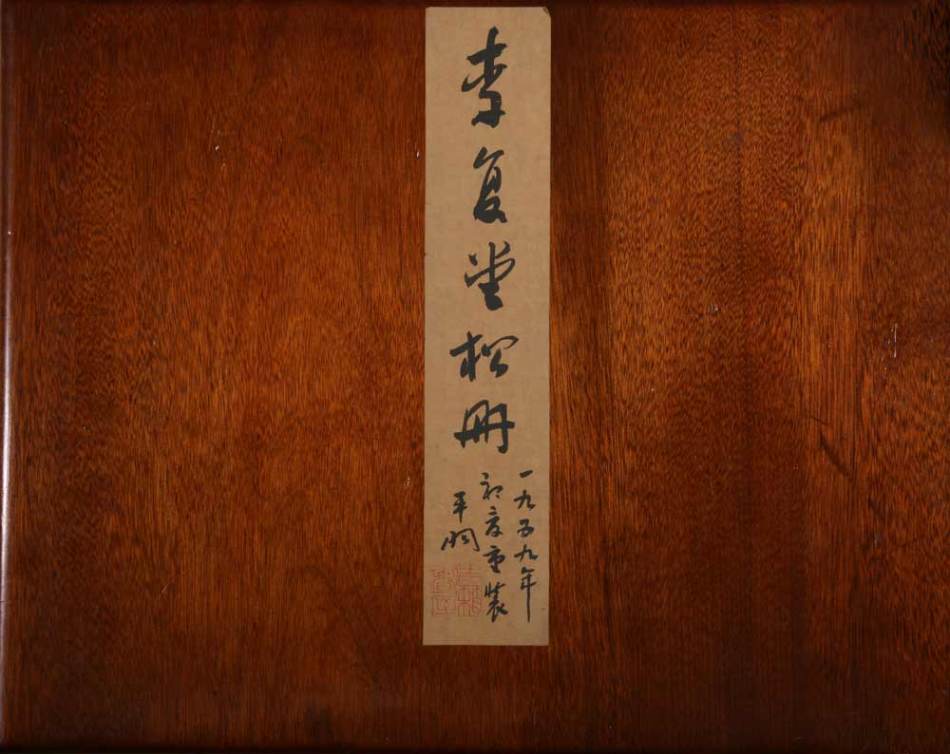 李复堂松册
一九五九年
初夏重装
平